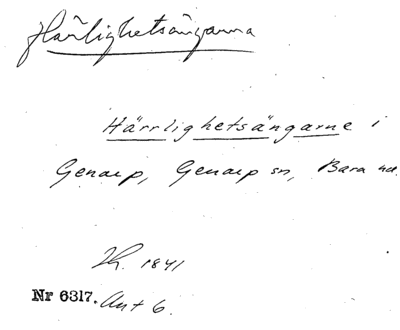 Härlighetsängarna
Härrlighetsängarne i
Genarp, Genarp sn, Bara hd,
1841
Nr 6317. Akt 6.